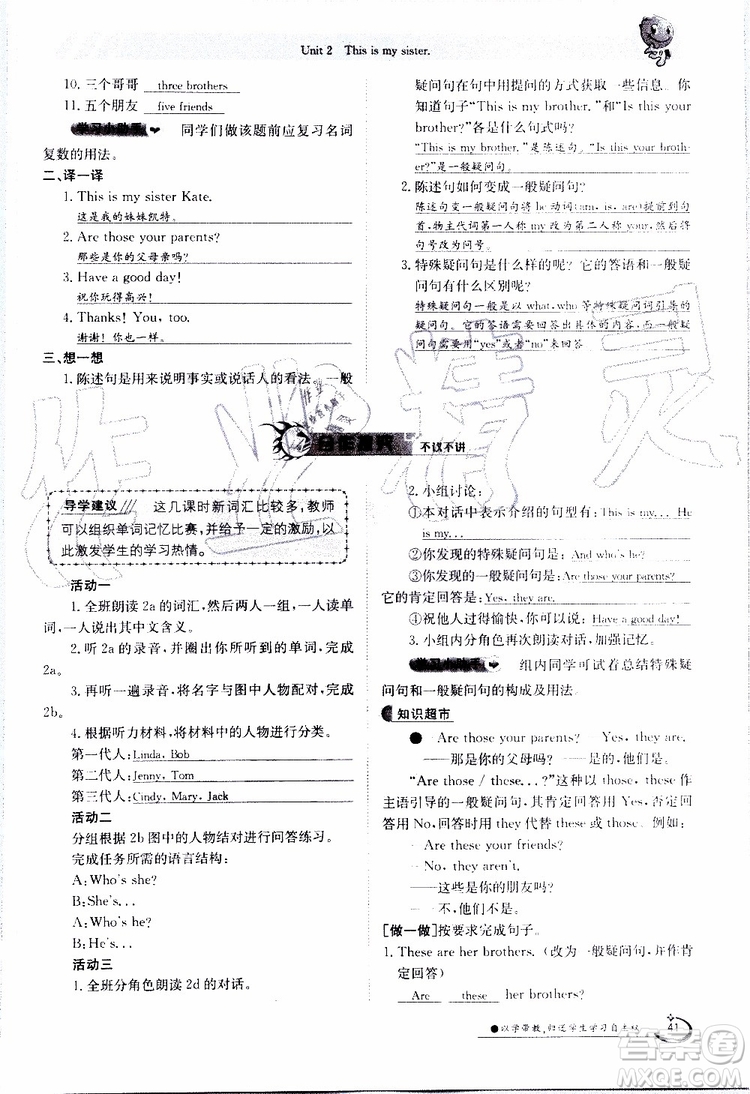 Unit 2 This is my sister.
10. 三个哥哥 three brothers
11. 五个朋友 five friends
学习小助手 同学们做该题前应复习名词
复数的用法。
二、译一译
1. This is my sister Kate.
这是我的妹妹凯特。
2. Are those your parents?
那些是你的父母亲吗?
3. Have a good day!
祝你玩得高兴!
4. Thanks! You, too.
谢谢! 你也一样。
三、想一想
1. 陈述句是用来说明事实或说话人的看法。一般
疑问句在句中用提问的方式获取一些信息。你
知道句子“This is my brother.”和“Is this your
brother?”各是什么句式吗?
“This is my brother.”是陈述句。“Is this your broth-
er?”是一般疑问句。
2. 陈述句如何变成一般疑问句?
陈述句变一般疑问句是将 be 动词(am, is, are)提到句
首,物主代词第一人称 my 改为第二人称 your,并将
句号改为问号。
3. 特殊疑问句是什么样的呢? 它的答语和一般疑
问句有什么区别呢?
特殊疑问句一般是以 what, who 等特殊疑问词引导的
疑问句。它的答语应回答出具体的内容,而一般疑
问句要用“yes”或者“no”来回答
不议不讲
导学建议 这几课时新词汇比较多,教师
可以组织单词记忆比赛,并给予一定的激励,以
此激发学生的学习热情。
活动一
1. 全班朗读 2a 的词汇,然后两人一组,一人读单
词,一人说出其中文含义。
2. 听 2a 的录音,并圈出你所听到的单词,完成
2a。
3. 再听一遍录音,将名字与图中人物配对,完成
2b。
4. 根据听力材料,将材料中的人物进行分类。
第一代人: Linda, Bob
第二代人: Jenny, Tom
第三代人: Cindy, Mary, Jack
活动二
分组根据 2b 图中的人物结对进行问答练习。
完成任务所需的语言结构:
A: Who's she?
B: She's...
A: Who's he?
B: He's...
活动三
1. 全班分角色朗读 2d 的对话。
2. 小组讨论:
①本对话中表示介绍的句型有: This is my... He
is my...
②你发现的特殊疑问句是: And who's he?
③你发现的一般疑问句是: Are those your parents?
它的肯定回答是: Yes, they are.
④祝他人过得愉快,你可以说: Have a good day!
3. 小组内分角色再次朗读对话,加强记忆。
学习小助手 组内同学可试着总结特殊疑
问句和一般疑问句的构成及用法。
知识超市
● —Are those your parents? —Yes, they are.
——那是你的父母吗? ——是的。
“Are those / these...?”这种以 those, these 作
主语引导的一般疑问句,其肯定回答用 Yes,否定回
答用 No,回答时用 they 代替 these 或 those。例如:
—Are these your friends?
—No, they aren't.
——这些是你的朋友吗?
——不,他们不是。
[做一做]按要求完成句子。
1. These are her brothers.(改为一般疑问句,并作肯
定回答)
Are these her brothers?
●以学带教,归还学生学习自主权 41
答案圈
MXQE.COM